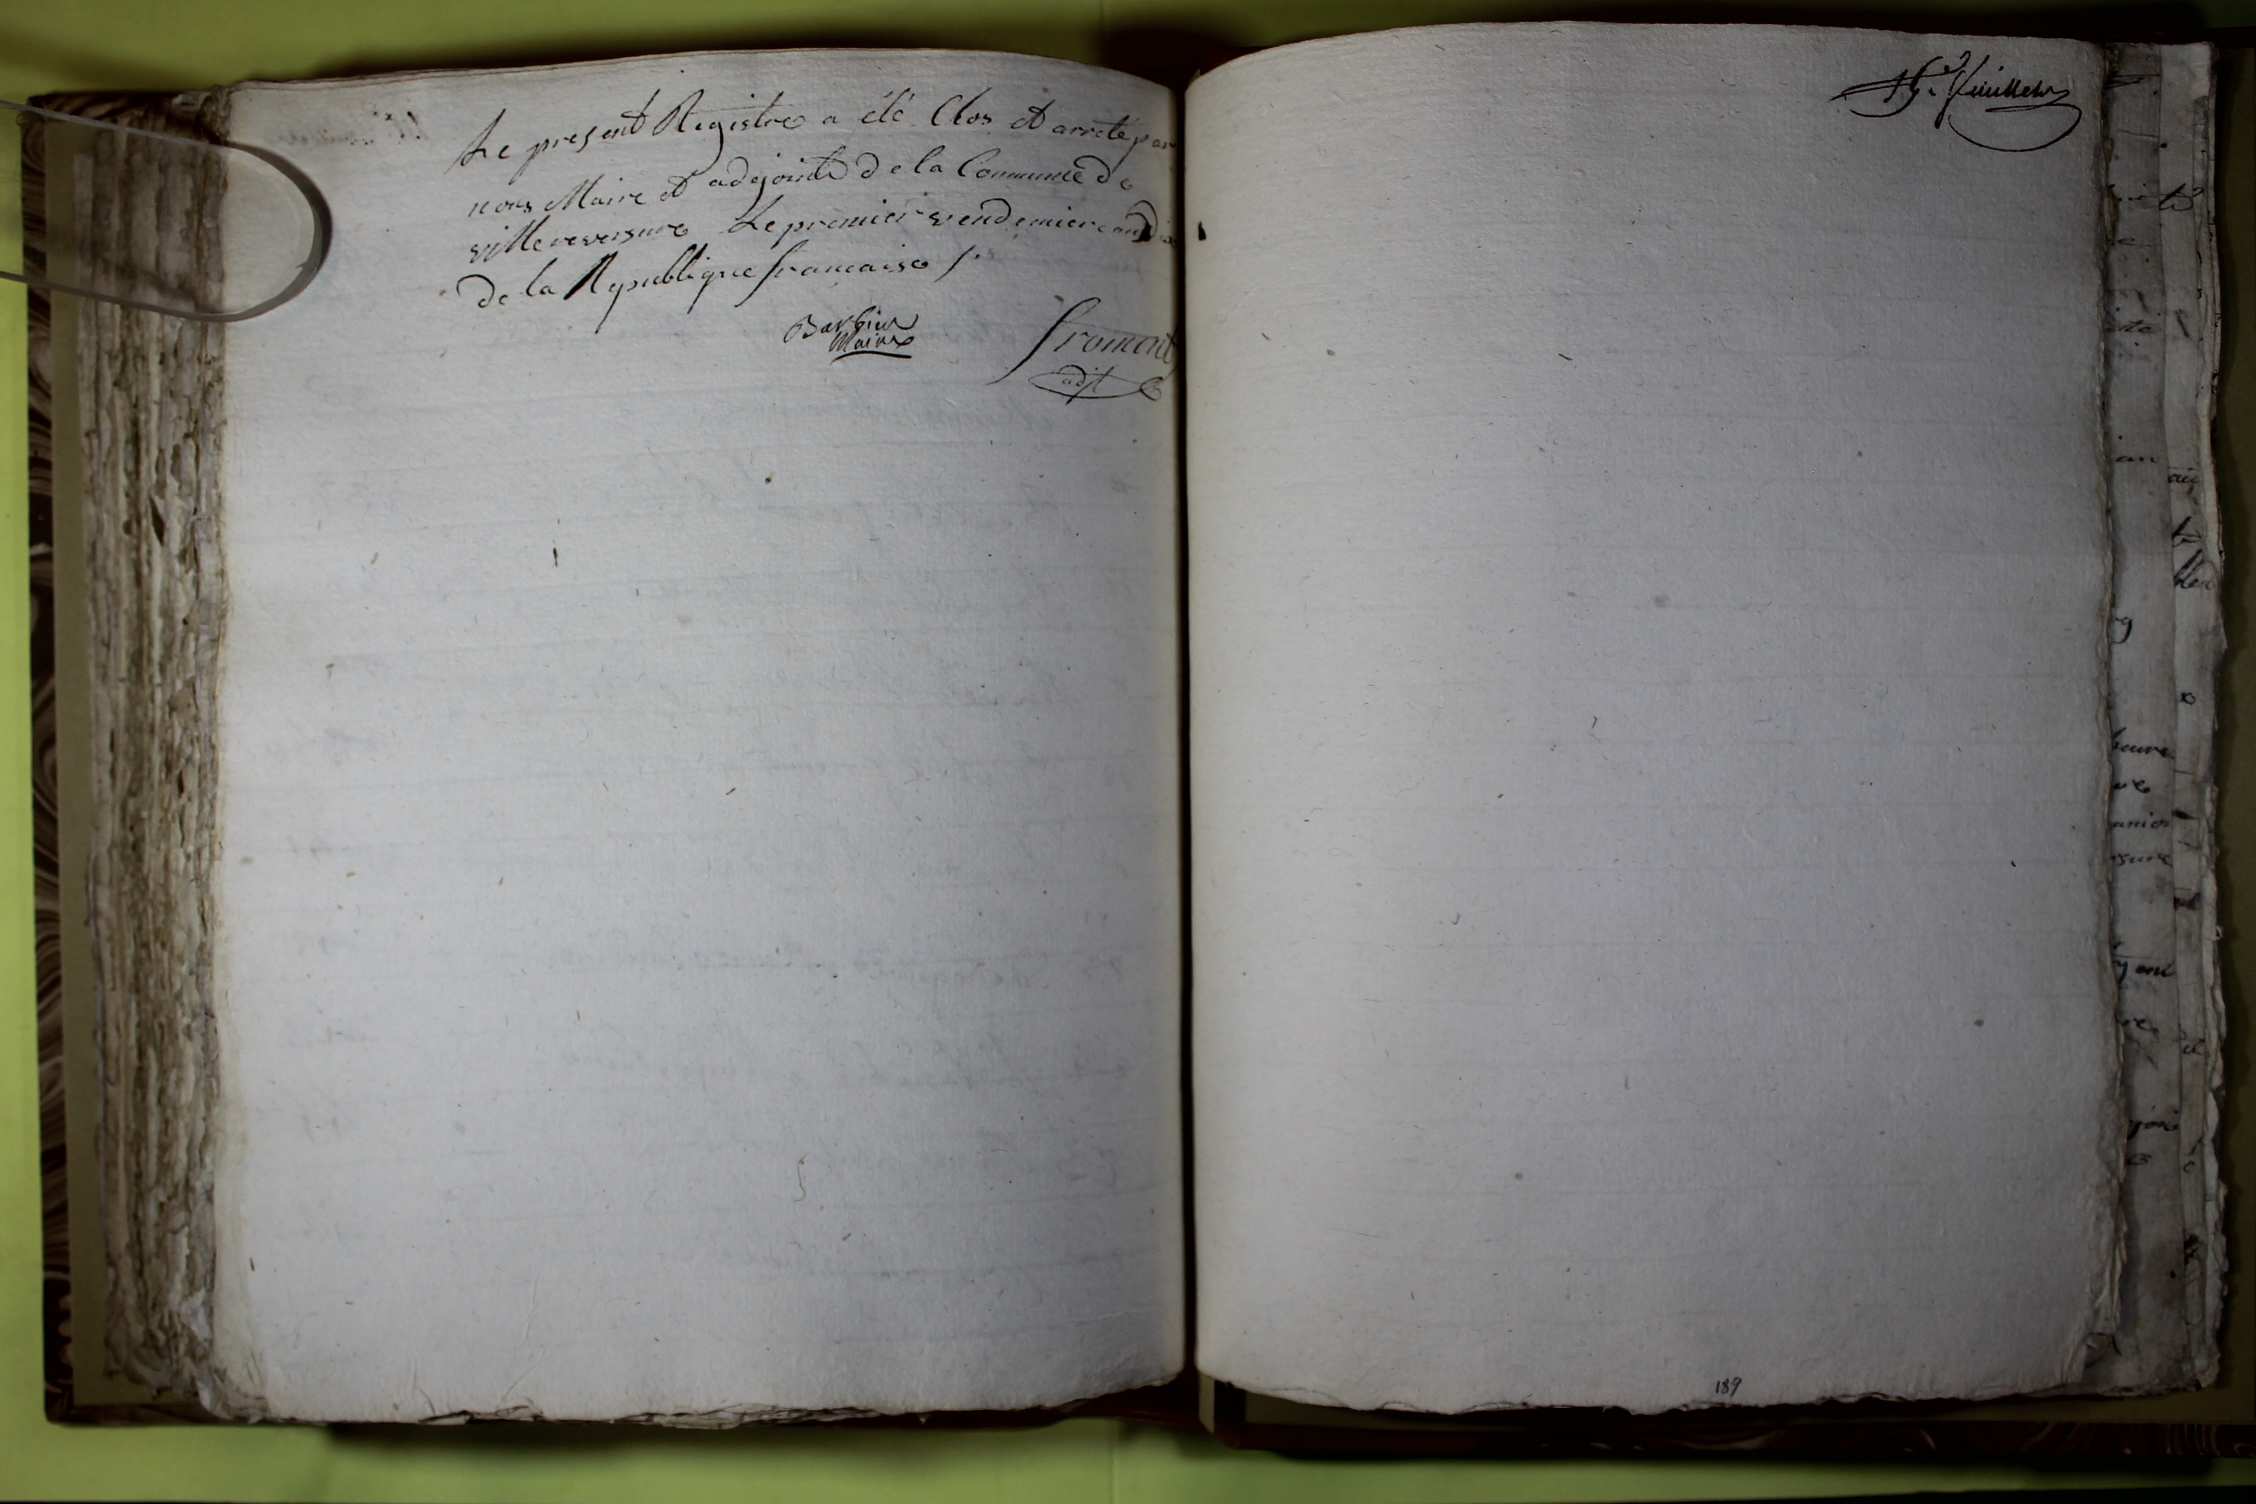 Le present Registre a été Clos et arreté par
nous Maire et adejoint de la Commune de
villereversure Le premier vendemiere an dix
de la Republique francaise /.
Barbier
Maire
fromont
adjt
189